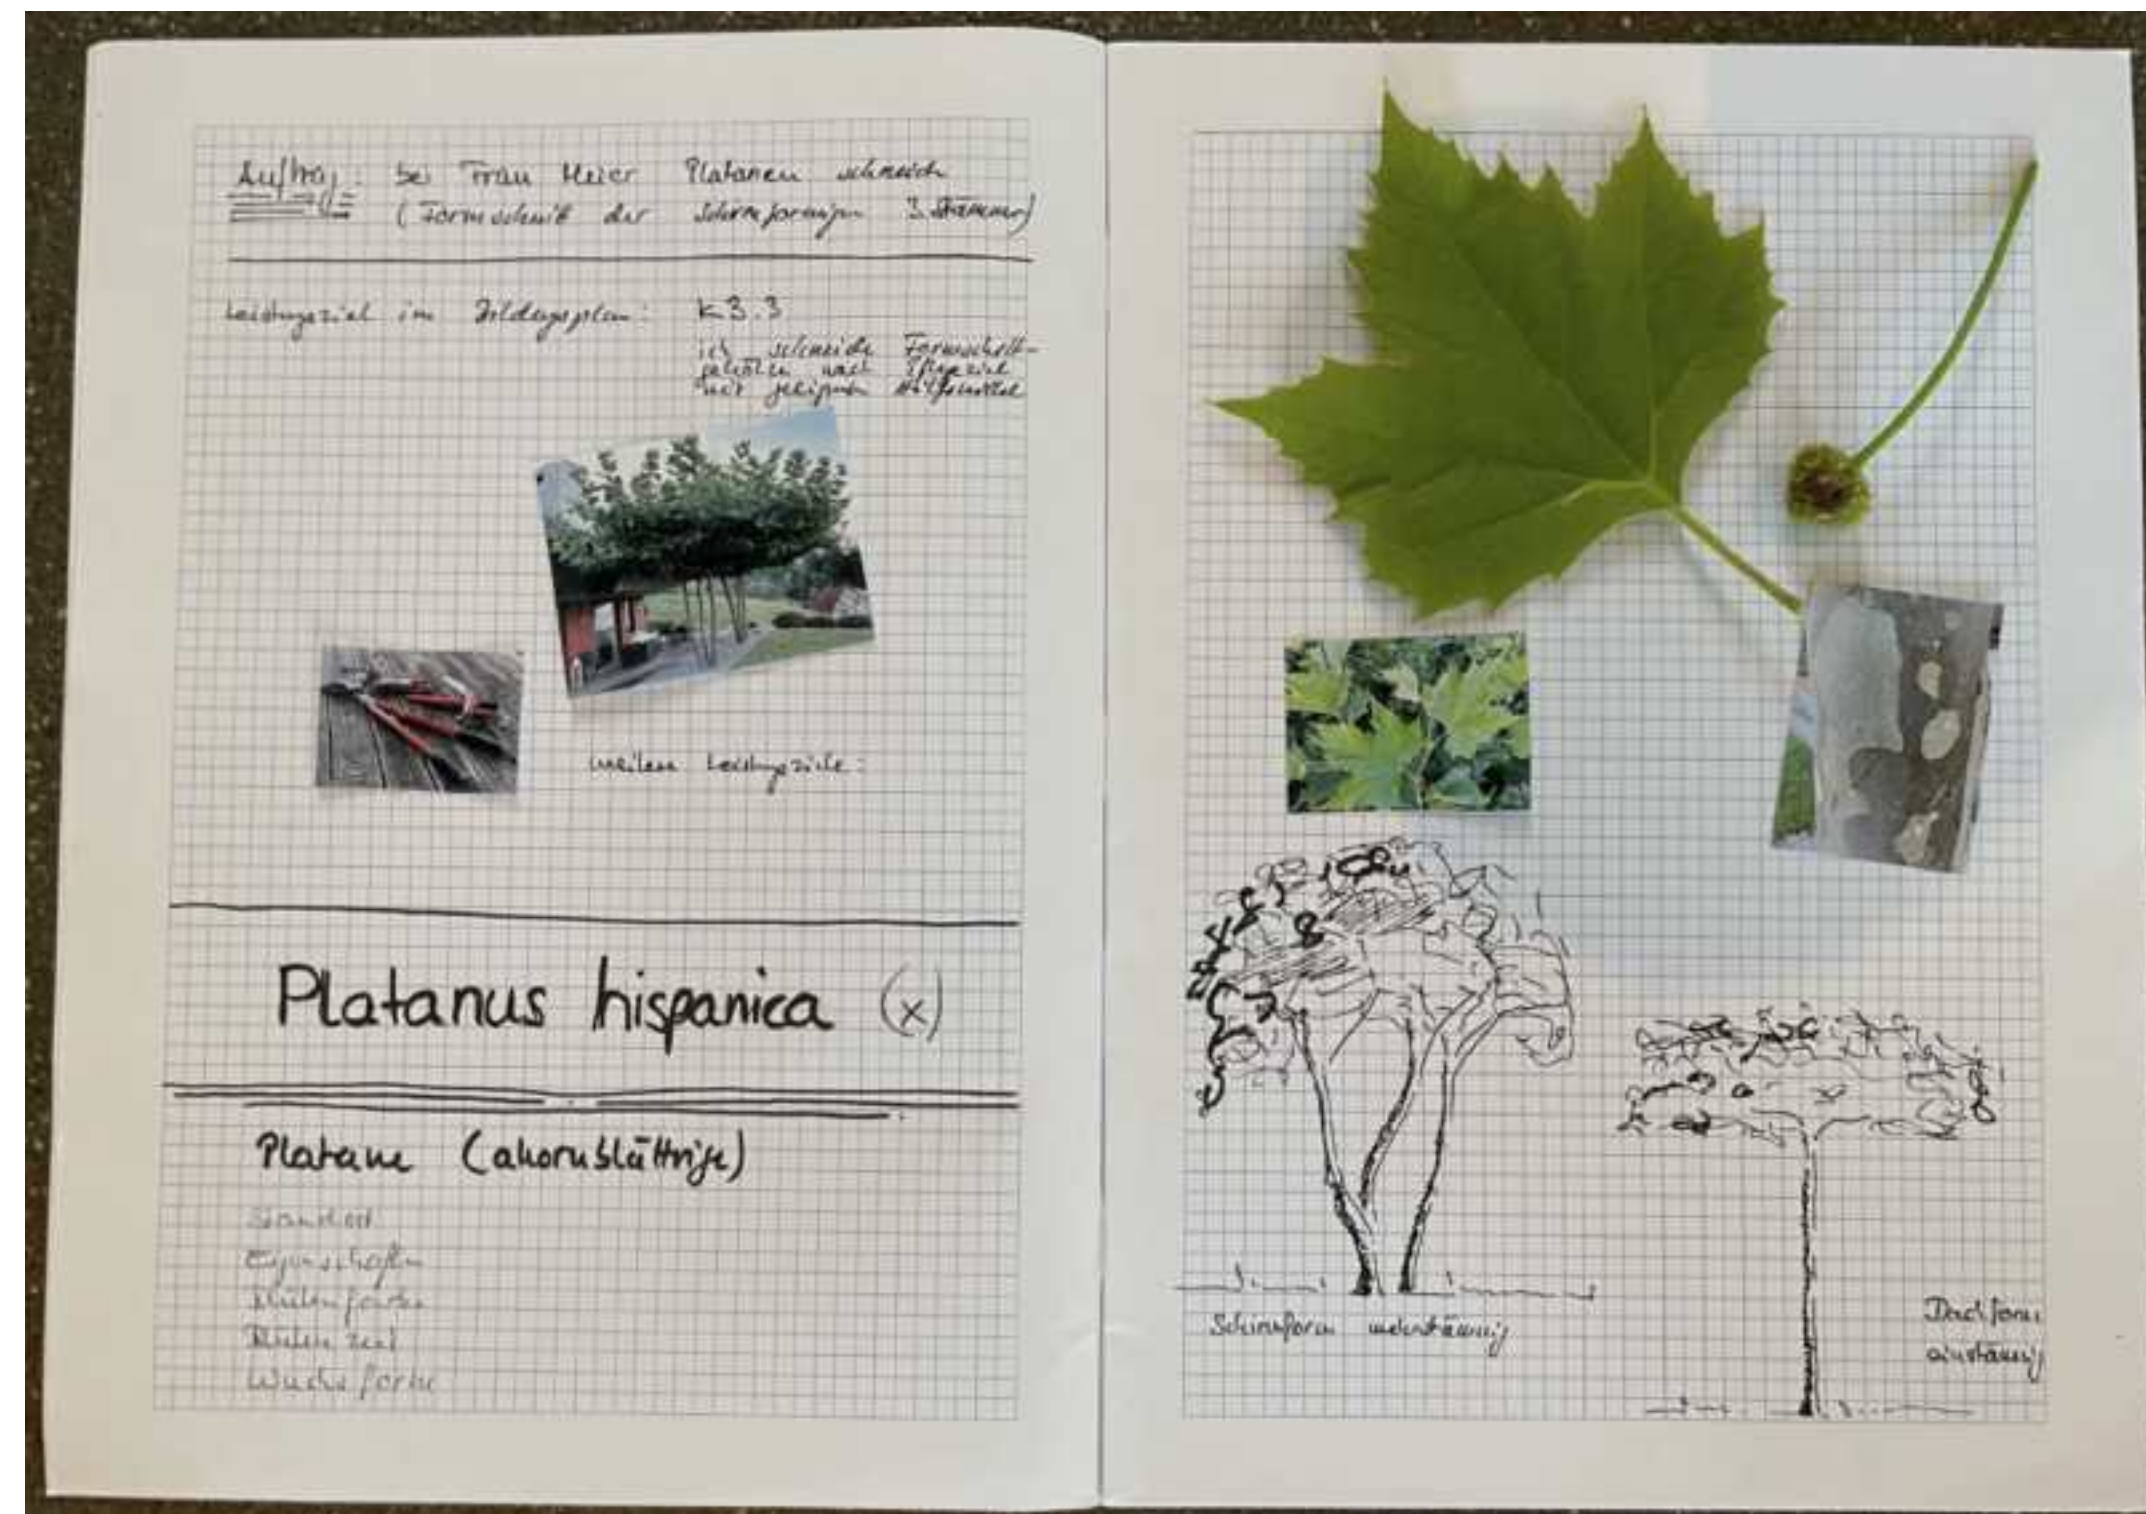 Auftrag: bei Frau Meier Platanen schneiden
(Formschnitt der Schirmförmigen 3 Stämmer)
Leistungsziel im Bildungsplan: K3.3
ich schneide Formschnitt-
gehölze nach Pflegeziel
mit geeigneten Hilfsmittel
weitere Leistungsziele:
Platanus hispanica (x)
Platane (ahornblättrige)
Standort
Eigenschaften
Blütenfarbe
Blütenzeit
Wuchsform
Schirmform mehrstämmig
Dachform
einstämmig